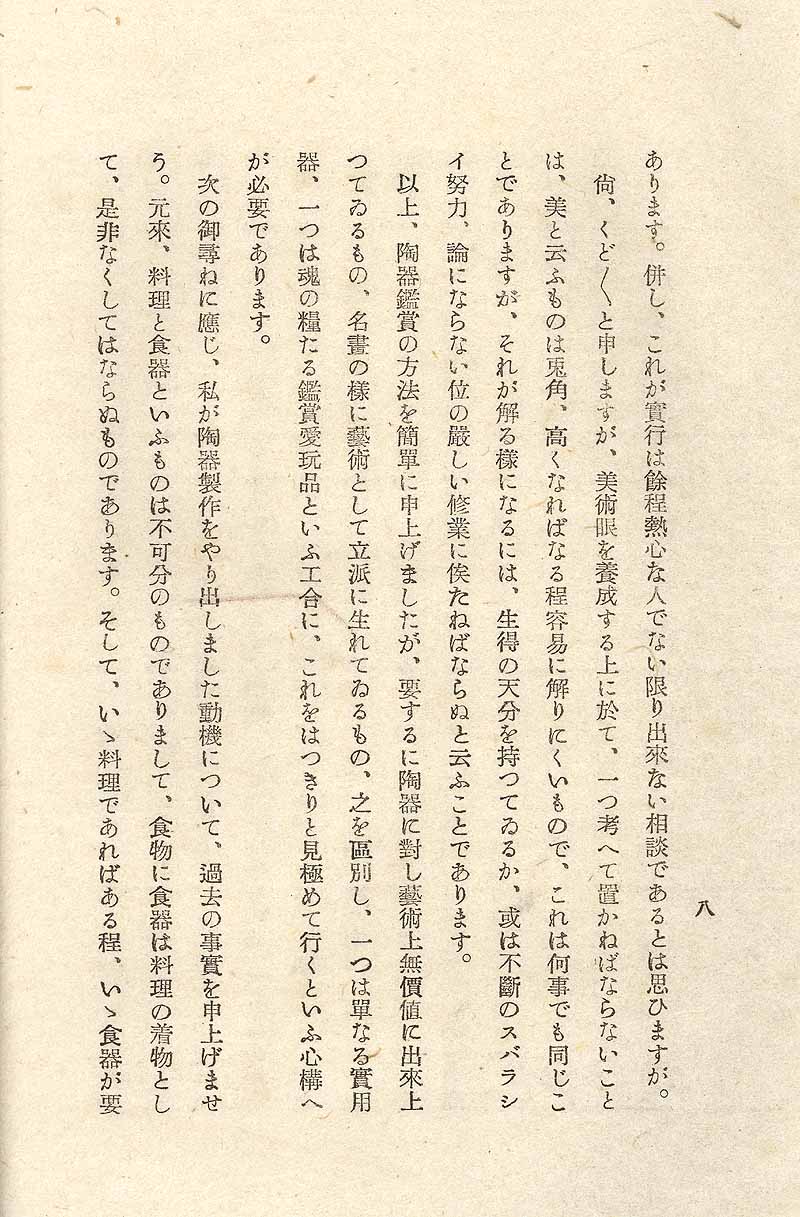 八
あります。併し、これが實行は餘程熱心な人でない限り出來ない相談であるとは思ひますが。
尙、くど〱と申しますが、美術眼を養成する上に於て、一つ考へて置かねばならないこと
は、美と云ふものは兎角、高くなればなる程容易に解りにくいもので、これは何事でも同じこ
とでありますが、それが解る樣になるには、生得の天分を持つてゐるか、或は不斷のスバラシ
イ努力、論にならない位の嚴しい修業に俟たねばならぬと云ふことであります。
以上、陶器鑑賞の方法を簡單に申上げましたが、要するに陶器に對し藝術上無價値に出來上
つてゐるもの、名畫の樣に藝術として立派に生れてゐるもの、之を區別し、一つは單なる實用
器、一つは魂の糧たる鑑賞愛玩品といふ工合に、これをはつきりと見極めて行くといふ心構へ
が必要であります。
次の御尋ねに應じ、私が陶器製作をやり出しました動機について、過去の事實を申上げませ
う。元來、料理と食器といふものは不可分のものでありまして、食物に食器は料理の着物とし
て、是非なくしてはならぬものであります。そして、いゝ料理であればある程、いゝ食器が要